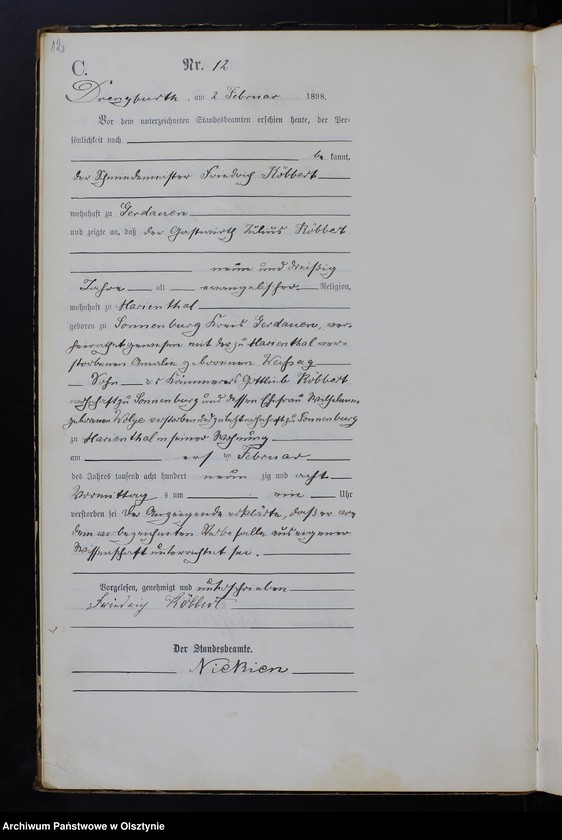 12
C.
Nr. 12
Drengfurth, am 2 Februar 1898.
Vor dem unterzeichneten Standesbeamten erschien heute, der Per-
sönlichkeit nach
be kannt,
der Schmiedemeister Friedrich Köbbert
wohnhaft zu Gerdauen
und zeigte an, daß der Gastwirth Julius Köbbert
neun und dreißig
Jahre alt evangelischer Religion,
wohnhaft zu Marienthal
geboren zu Sonnenburg Kreis Gerdauen, ver-
heirathet gewesen mit der zu Marienthal ver-
storbenen Amalie geborenen
Sohn des Kämmerers Gottlieb Köbbert
wohnhaft zu Sonnenburg und dessen Ehefrau Wilhelmine
geborenen verstorben und zuletzt wohnhaft zu Sonnenburg
zu Marienthal in seiner Wohnung
am ersten Februar
des Jahres tausend acht hundert neun zig und acht
Vormittags um ein Uhr
verstorben sei Der Anzeigende erklärte, daß er von
dem vorbezeichneten Sterbefalle aus eigener
Wissenschaft unterrichtet sei.
Vorgelesen, genehmigt und unterschrieben
Friedrich Köbbert
Der Standesbeamte.
Niekien
Archiwum Państwowe w Olsztynie